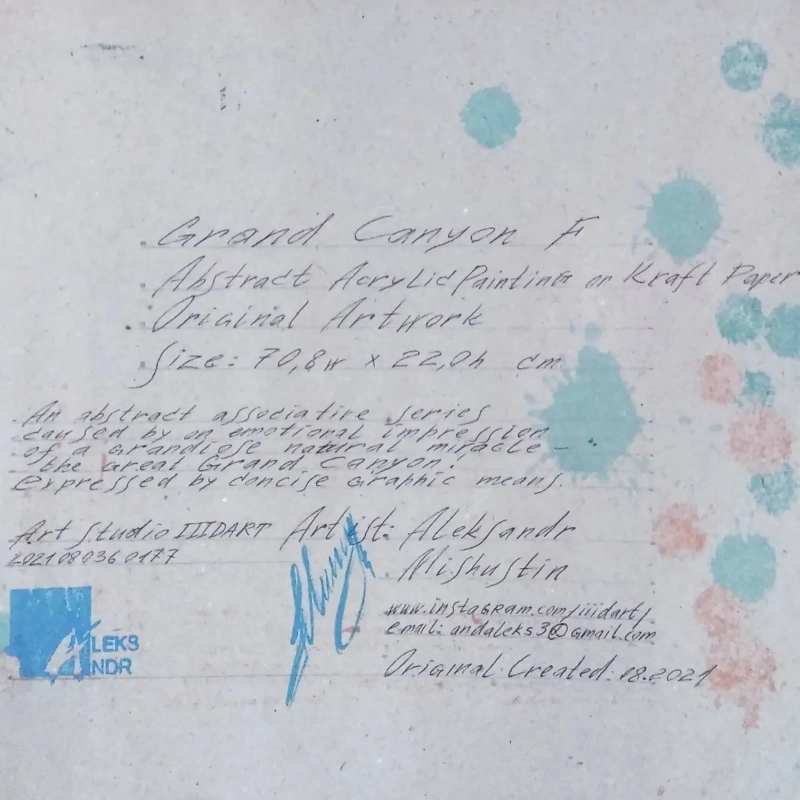 Grand Canyon F
Abstract Acrylic Painting on Kraft Paper
Original Artwork
Size: 70,8w x 22,0h cm
An abstract associative series
caused by on emotional impression
of a grandiose natural miracle -
the great Grand Canyon!
Expressed by concise graphic means.
Art Studio IIIDART Artist: Aleksandr
Mishustin
2021080360177
www.instagram.com/iiidart/
email: andaleks3@gmail.com
ALEKS
ANDR
Original Created: 08.2021